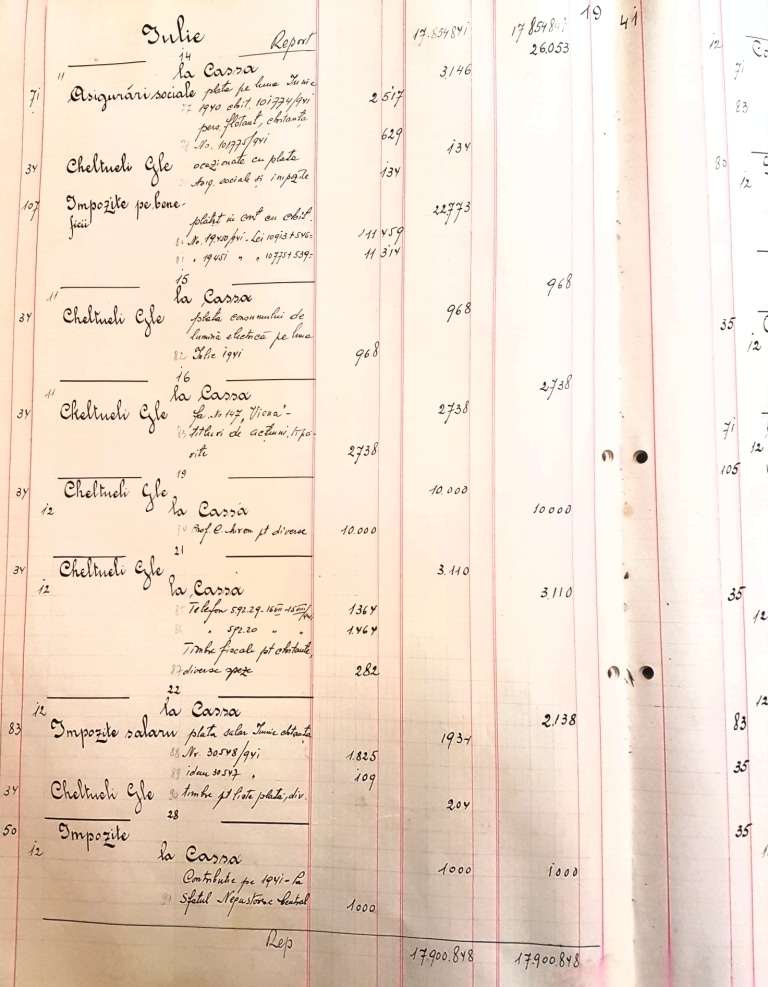 19 41
Iulie Report 17.854841 17854841
14 26.053
" la Cassa 3146
71 Asigurări sociale plata pe luna Iunie
77 1940 chit. 101774/941 2517
pers. flotant, chitanța
78 No. 101775/941 629
34 Cheltueli Gle ocazionate cu plata 134
79 Asig. sociale și impozite 134
107 Impozite pe bene- 22773
ficii plătit in cont cu chit.
80 No. 19450/941 - Lei 10913+546= 11459
81 " 19451 " " 10775+539= 11314
15
11 la Cassa 968
34 Cheltueli Gle plata consumului de 968
lumină electrică pe luna
82 Iulie 1941 968
16
11 la Cassa 2738
34 Cheltueli Gle fa. No 147 "Viena" - 2738
83 titluri de acțiuni, tipă-
rite 2738
19
34 Cheltueli Gle 10.000
12 la Cassa 10000
84 Prof. C. pt diverse 10.000
21
34 Cheltueli Gle 3.110
12 la Cassa 3.110
85 Telefon 592.29 - 1364
86 " 592.20 " " 1.464
Timbre fiscale pt chitante,
87 diverse speze 282
22
12 la Cassa 2.138
83 Impozite salarii plata salar Iunie chitanța 1934
88 Nr. 30548/941 1.825
89 idem 30547 " 109
34 Cheltueli Gle 90 timbre pt liste plată, div. 204
28
50 Impozite
12 la Cassa 1000 1000
Contributie pe 1941 - la
91 Sfatul Negustoresc Central 1000
Rep 17.900.848 17.900.848
12
71
83
80
12
35
12
71
12
105
35
12
12
83
35
35